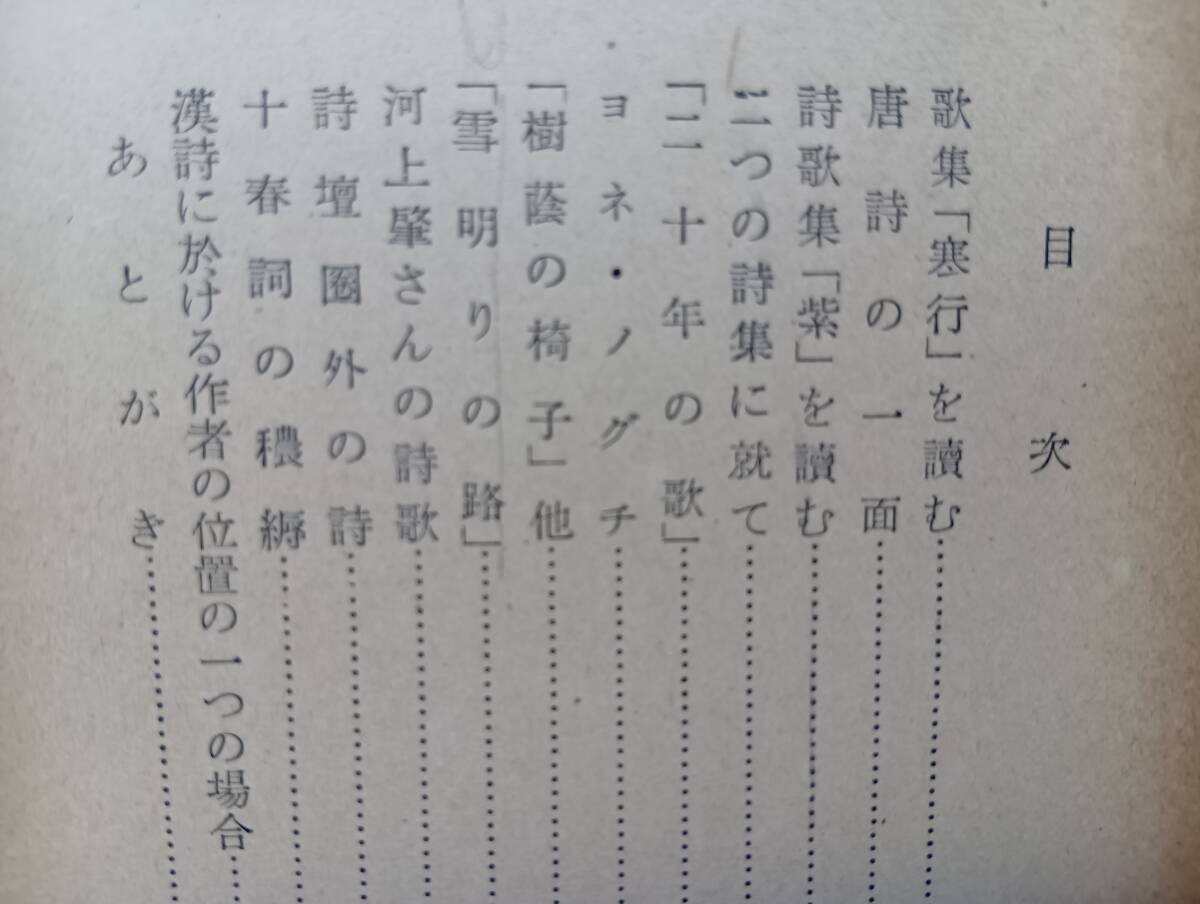 目次
歌集「寒行」を讀む
唐詩の一面
詩歌集「紫」を讀む
二つの詩集に就て
「二十年の歌」
ヨネ・ノグチ
「樹蔭の椅子」他
「雪明りの路」
河上肇さんの詩歌
詩壇圈外の詩
十春詞の穠縟
漢詩に於ける作者の位置の一つの場合
あとがき